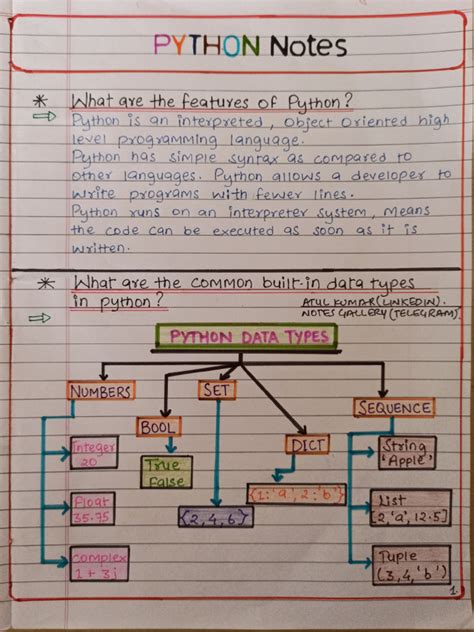 PYTHON Notes
* What are the features of Python?
Python is an interpreted, Object Oriented high
level programming language.
Python has simple syntax as compared to
other languages. Python allows a developer to
write programs with fewer lines.
Python runs on an interpreter system, means
the code can be executed as soon as it is
written.
* What are the common built-in data types
in python?
ATUL KUMAR(LINKEDIN).
NOTES GALLERY(TELEGRAM).
PYTHON DATA TYPES
NUMBERS
Integer
20
Float
35.75
complex
1 + 3j
BOOL
True
False
SET
{2,4,6}
DICT
{1:'a',2:'b'}
SEQUENCE
String
'Apple'
List
[2,'a',12.5]
Tuple
(3,4,'b')
1.